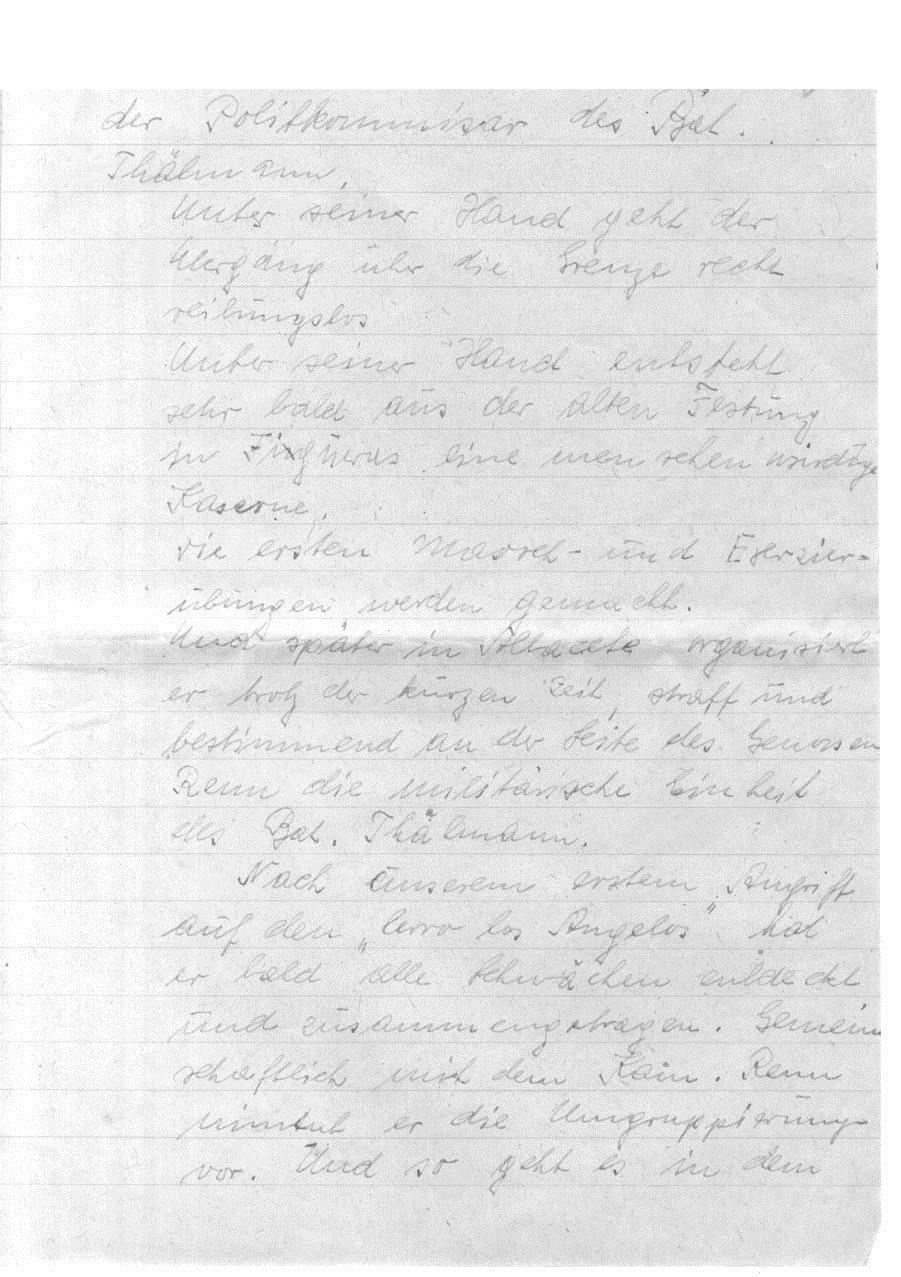 der Politkommisar des Bat.
Thälmann,
Unter seiner Hand geht der
Übergang über die Grenze recht
reibungslos
Unter seiner Hand entsteht
sehr bald aus der alten Festung
in Figueras eine menschenwürdige
Kaserne,
die ersten Marsch- und Exerzier-
übungen werden gemacht.
Und später in Albacete organisiert
er trotz der kurzen Zeit, straff und
bestimmend an der Seite des Genossen
Renn die militärische Einheit
des Bat. Thälmann.
Nach unserem erstem Angriff
auf den „Cerro los Angelos" hat
er bald alle Schwächen entdeckt
und zusammengetragen. Gemein
schaftlich mit dem Kam. Renn
nimmt er die Umgruppierung
vor. Und so geht es in dem